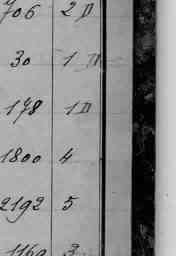 706 2 D
30 1 D
178 1 D
1800 4
2192 5
1160 3